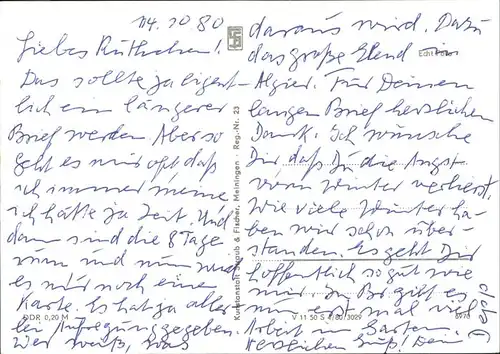 14.10.80
Liebes Ruthchen!
Das sollte ja eigent-
lich ein längerer
Brief werden. Aber so
geht es mir oft daß
ich immer meine
ich hätte ja Zeit. Und
dann sind die 8 Tage
rum und nun wird
es nur noch eine
Karte. Es hat ja aller
lei Aufregung gegeben.
Wer weiß, was
daraus wird. Dazu
das große Elend in
Algier. Für Deinen
langen Brief herzlichen
Dank. Ich wünsche
Dir, daß Du die Angst
vorm Winter verlierst.
Wie viele Winter ha-
ben wir schon über-
standen. Es geht Dir
hoffentlich so gut wie
mir. In gibt es
noch mal viel
Arbeit im Garten.
Herzlichen Gruß! Dein
Echt Foto
Kunstanstalt Straub & Fischer, Meiningen · Reg.-Nr. 23
DDR 0,20 M
V 11 50 S 4/80/3029